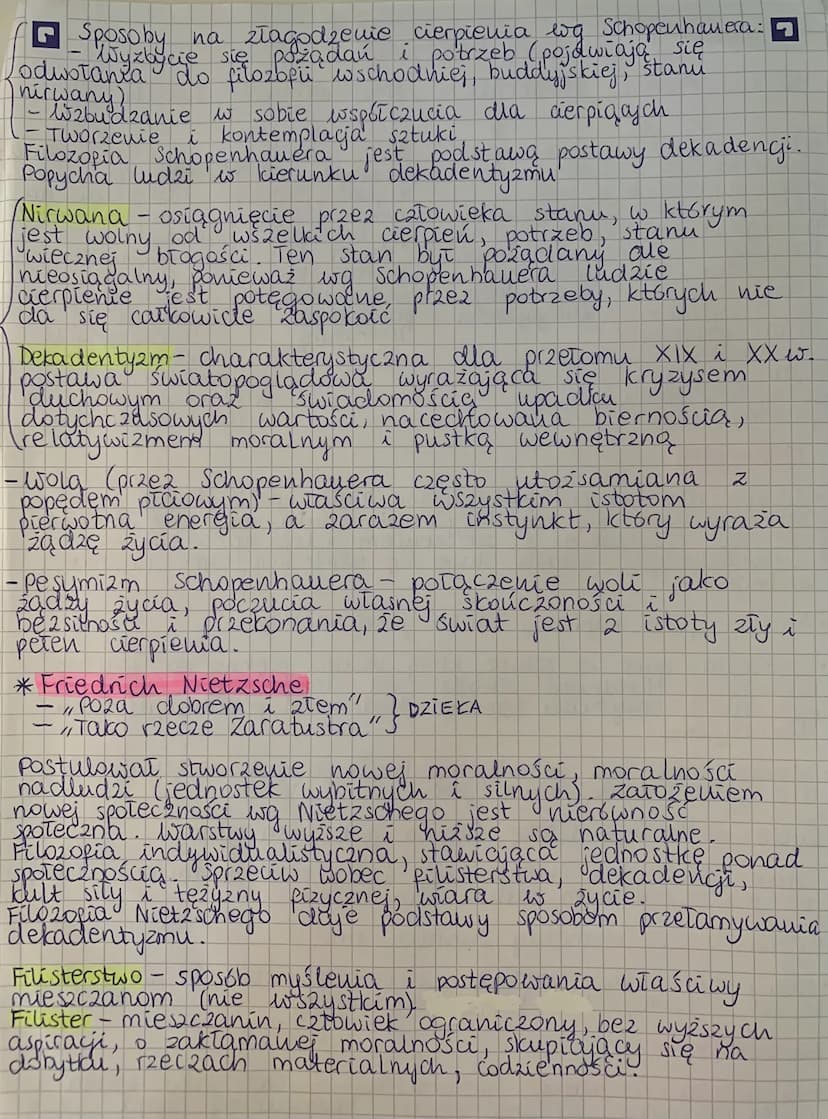 Sposoby na złagodzenie cierpienia wg Schopenhauera:
- Wyzbycie się pożądań i potrzeb (pojawiają się
odwołania do filozofii wschodniej, buddyjskiej, stanu
nirwany)
- Wzbudzanie w sobie współczucia dla cierpiących
- Tworzenie i kontemplacja sztuki
Filozofia Schopenhauera jest podstawą postawy dekadencji.
Popycha ludzi w kierunku dekadentyzmu
Nirwana - osiągnięcie przez człowieka stanu, w którym
jest wolny od wszelkich cierpień, potrzeb, stanu
wiecznej błogości. Ten stan był pożądany ale
nieosiągalny, ponieważ wg Schopenhauera ludzie
cierpienie jest potęgowane przez potrzeby, których nie
da się całkowicie zaspokoić
Dekadentyzm - charakterystyczna dla przełomu XIX i XX w.
postawa światopoglądowa wyrażająca się kryzysem
duchowym oraz świadomością upadku
dotychczasowych wartości, nacechowana biernością,
relatywizmem moralnym i pustką wewnętrzną
- Wola (przez Schopenhauera często utożsamiana z
popędem płciowym) - właściwa wszystkim istotom
pierwotna energia, a zarazem instynkt, który wyraża
żądzę życia.
- Pesymizm Schopenhauera - połączenie woli jako
żądzy życia, poczucia własnej skończoności i
bezsilności i przekonania, że świat jest z istoty zły i
pełen cierpienia.
* Friedrich Nietzsche
- „Poza dobrem i złem" } DZIEŁA
- „Tako rzecze Zaratustra"
Postulował stworzenie nowej moralności, moralności
nadludzi (jednostek wybitnych i silnych). Założeniem
nowej społeczności wg Nietzschego jest nierówność
społeczna. Warstwy wyższe i niższe są naturalne.
Filozofia indywidualistyczna, stawiająca jednostkę ponad
społecznością. Sprzeciw wobec filisterstwa, dekadencji,
kult siły i tężyzny fizycznej, wiara w życie.
Filozofia Nietzschego daje podstawy sposobom przełamywania
dekadentyzmu.
Filisterstwo - sposób myślenia i postępowania właściwy
mieszczanom (nie wszystkim)
Filister - mieszczanin, człowiek ograniczony, bez wyższych
aspiracji, o zakłamanej moralności, skupiający się na
dobytku, rzeczach materialnych, codzienności.